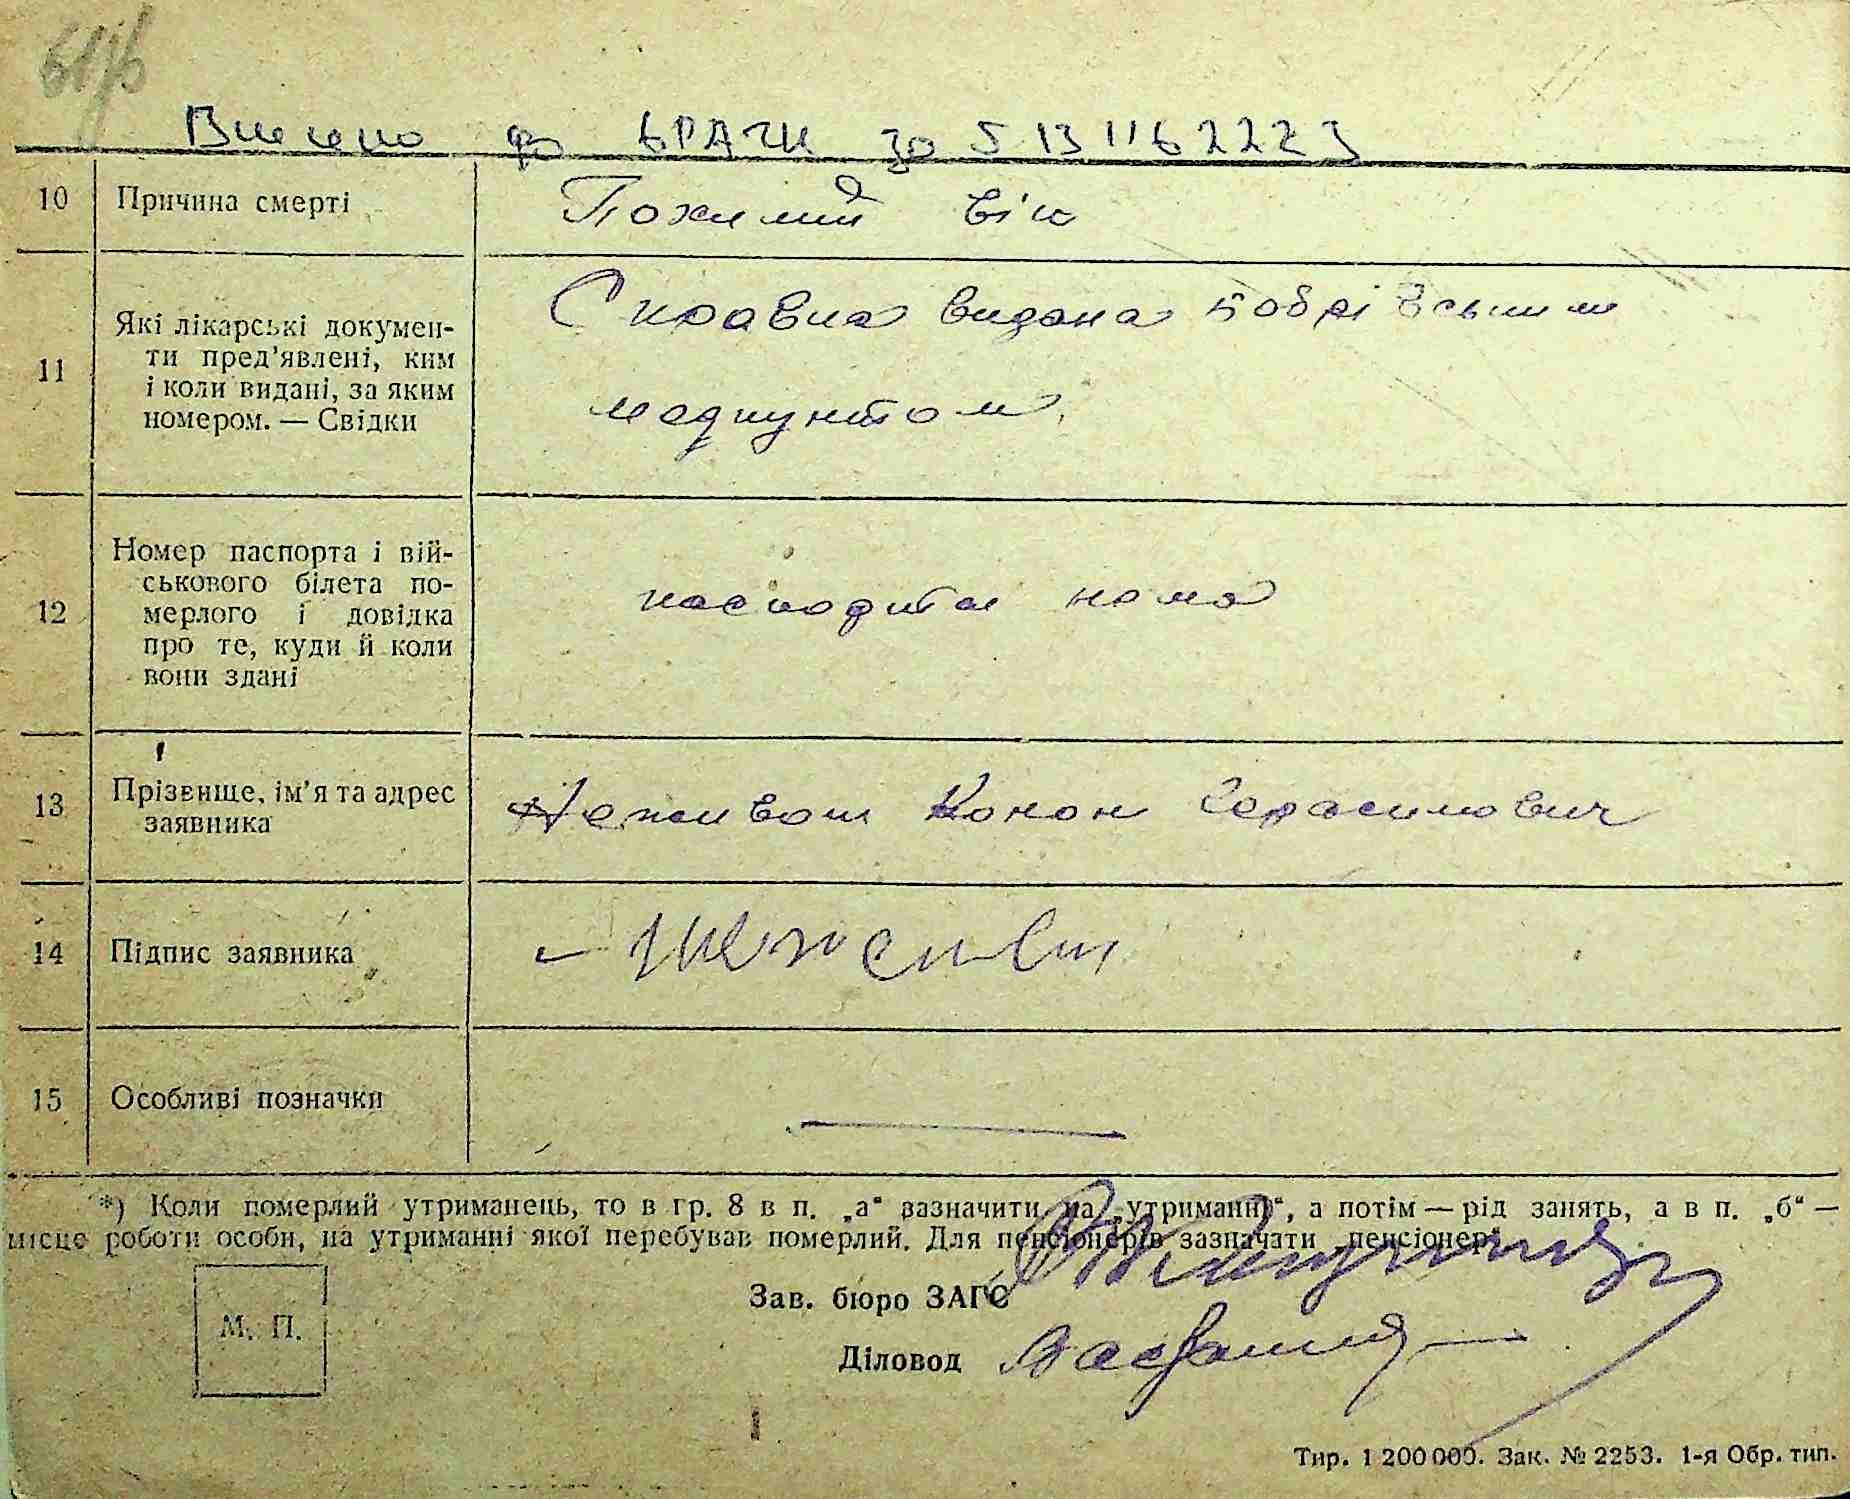 Внесено до ДРАЦС за 5131162223
10 Причина смерті Пожилий вік
11 Які лікарські докумен-
ти пред’явлені, ким
і коли видані, за яким
номером. — Свідки
Справка видана Бобрівським
медпунктом.
12 Номер паспорта і вій-
ськового білета по-
мерлого і довідка
про те, куди й коли
вони здані
паспорта нема
13 Прізвище, ім’я та адрес
заявника
Неживой Конон Герасимович
14 Підпис заявника
15 Особливі позначки
*) Коли померлий утриманець, то в гр. 8 в п. „а“ зазначити „на утриманні“, а потім — рід занять, а в п. „б“ —
місце роботи особи, на утриманні якої перебував померлий. Для пенсіонерів зазначати „пенсіонер“
Зав. бюро ЗАГС
М. П.
Діловод
Тир. 1 200 000. Зак. № 2253. 1-я Обр. тип.